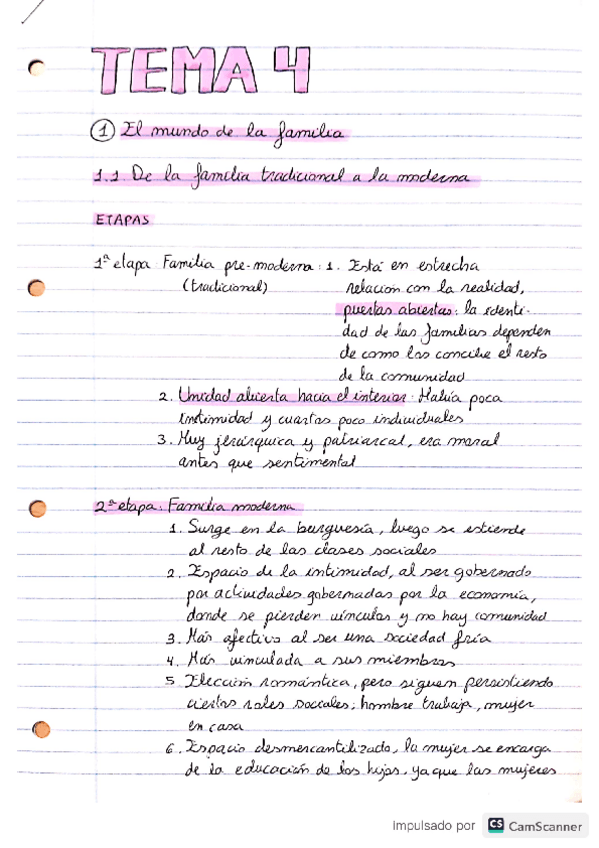 TEMA 4
1 El mundo de la familia
1.1 De la familia tradicional a la moderna
ETAPAS
1ª etapa Familia pre-moderna: 1. Está en estrecha
(tradicional) relacion con la realidad,
puertas abiertas: la identi-
dad de las familias dependen
de como las concibe el resto
de la comunidad
2. Unidad abierta hacia el interior: Había poca
intimidad y cuartos poco individuales
3. Muy jerárquica y patriarcal, era moral
antes que sentimental
2ª etapa: Familia moderna
1. Surge en la burguesía, luego se extiende
al resto de las clases sociales
2. Espacio de la intimidad, al ser gobernado
por actividades gobernadas por la economía,
donde se pierden vínculos y no hay comunidad
3. Más afectiva al ser una sociedad fría
4. Más vinculada a sus miembros
5. Elección romántica, pero siguen persistiendo
ciertos roles sociales; hombre trabaja, mujer
en casa
6. Espacio desmercantilizado, la mujer se encarga
de la educación de los hijos, ya que las mujeres
Impulsado por CS CamScanner